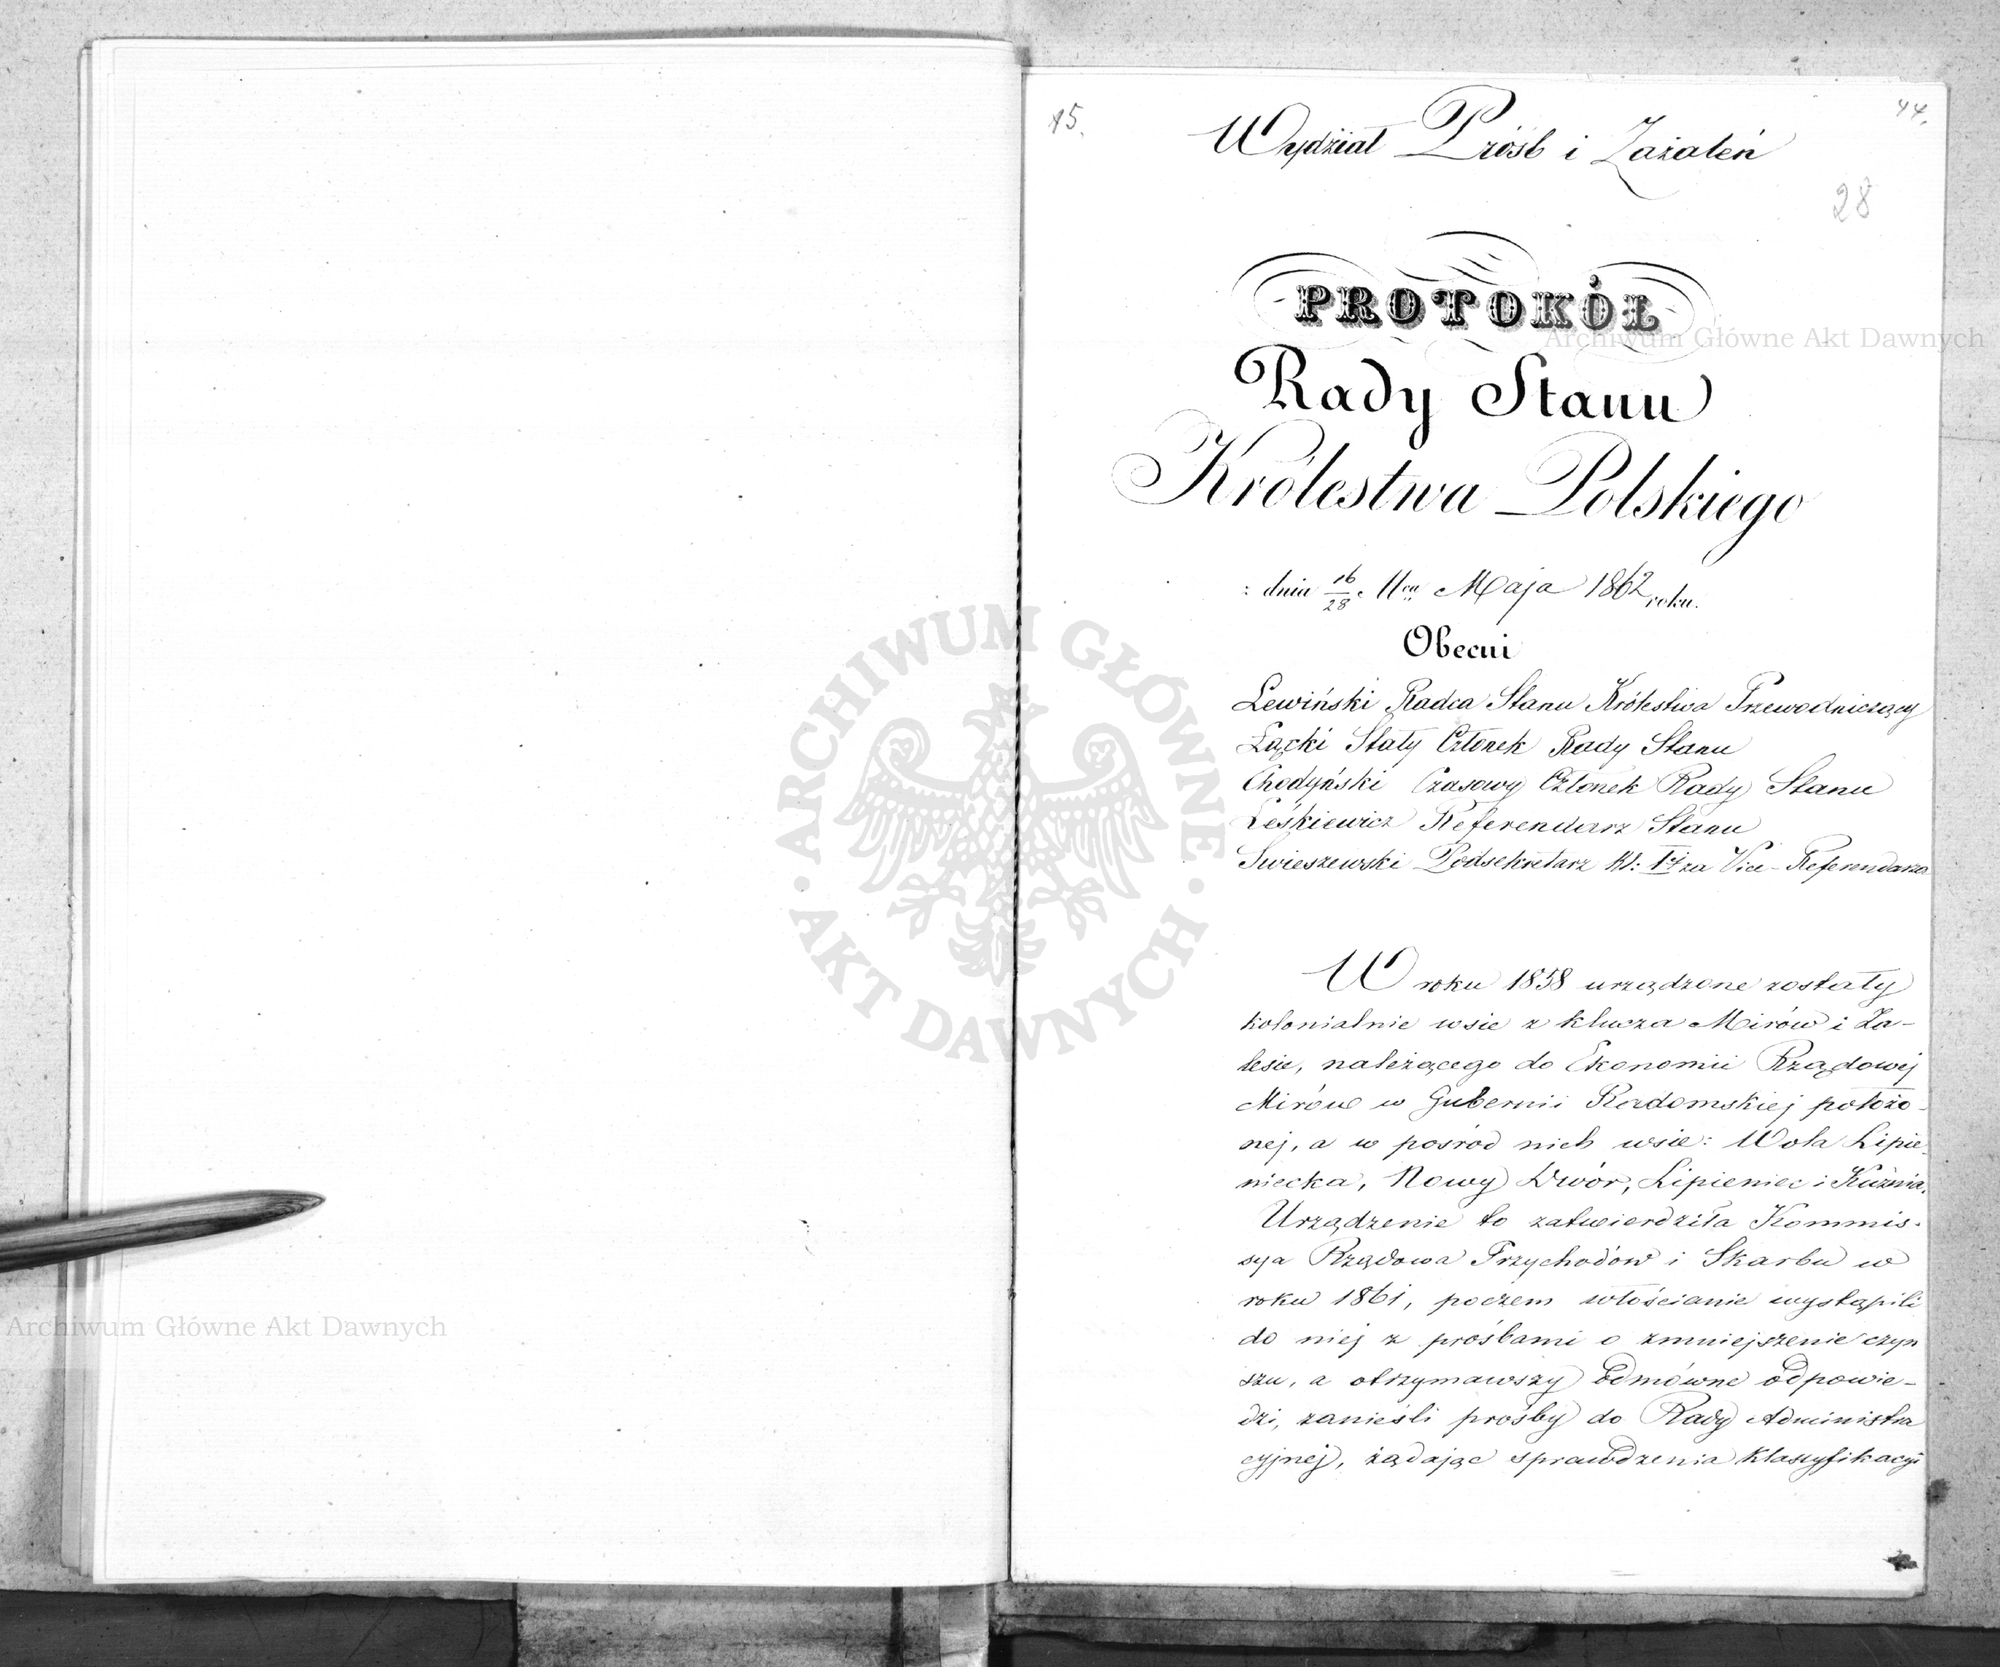 15.
44.
Wydział Próśb i Zażaleń
28
PROTOKÓŁ
Rady Stanu
Królestwa Polskiego
dnia 16/28 Mca Maja 1862 roku.
Obecni
Lewiński Radca Stanu Królestwa Przewodniczący
Łącki Stały Członek Rady Stanu
Chodyński Czasowy Członek Rady Stanu
Leśkiewicz Referendarz Stanu
Swieszewski Podsekretarz kl: za Vice-Referendarza
W roku 1858 urządzone zostały
kolonialnie wsie z klucza Mirów i Za-
lesie, należącego do Ekonomii Rządowej
Mirów w Gubernii Radomskiej położo-
nej, a w pośród nich wsie: Wola Lipie-
niecka, Nowy Dwór, Lipieniec i Kuźnia.
Urządzenie to zatwierdziła Kommis-
sya Rządowa Przychodów i Skarbu w
roku 1861, poczem włościanie wystąpili
do niej z prośbami o zmniejszenie czyn
szu, a otrzymawszy odmówne odpowie-
dzi, zanieśli prośby do Rady Administra
cyjnej, żądając sprawdzenia klassyfikacyi
Archiwum Główne Akt Dawnych
ARCHIWUM GŁÓWNE AKT DAWNYCH
Archiwum Główne Akt Dawnych